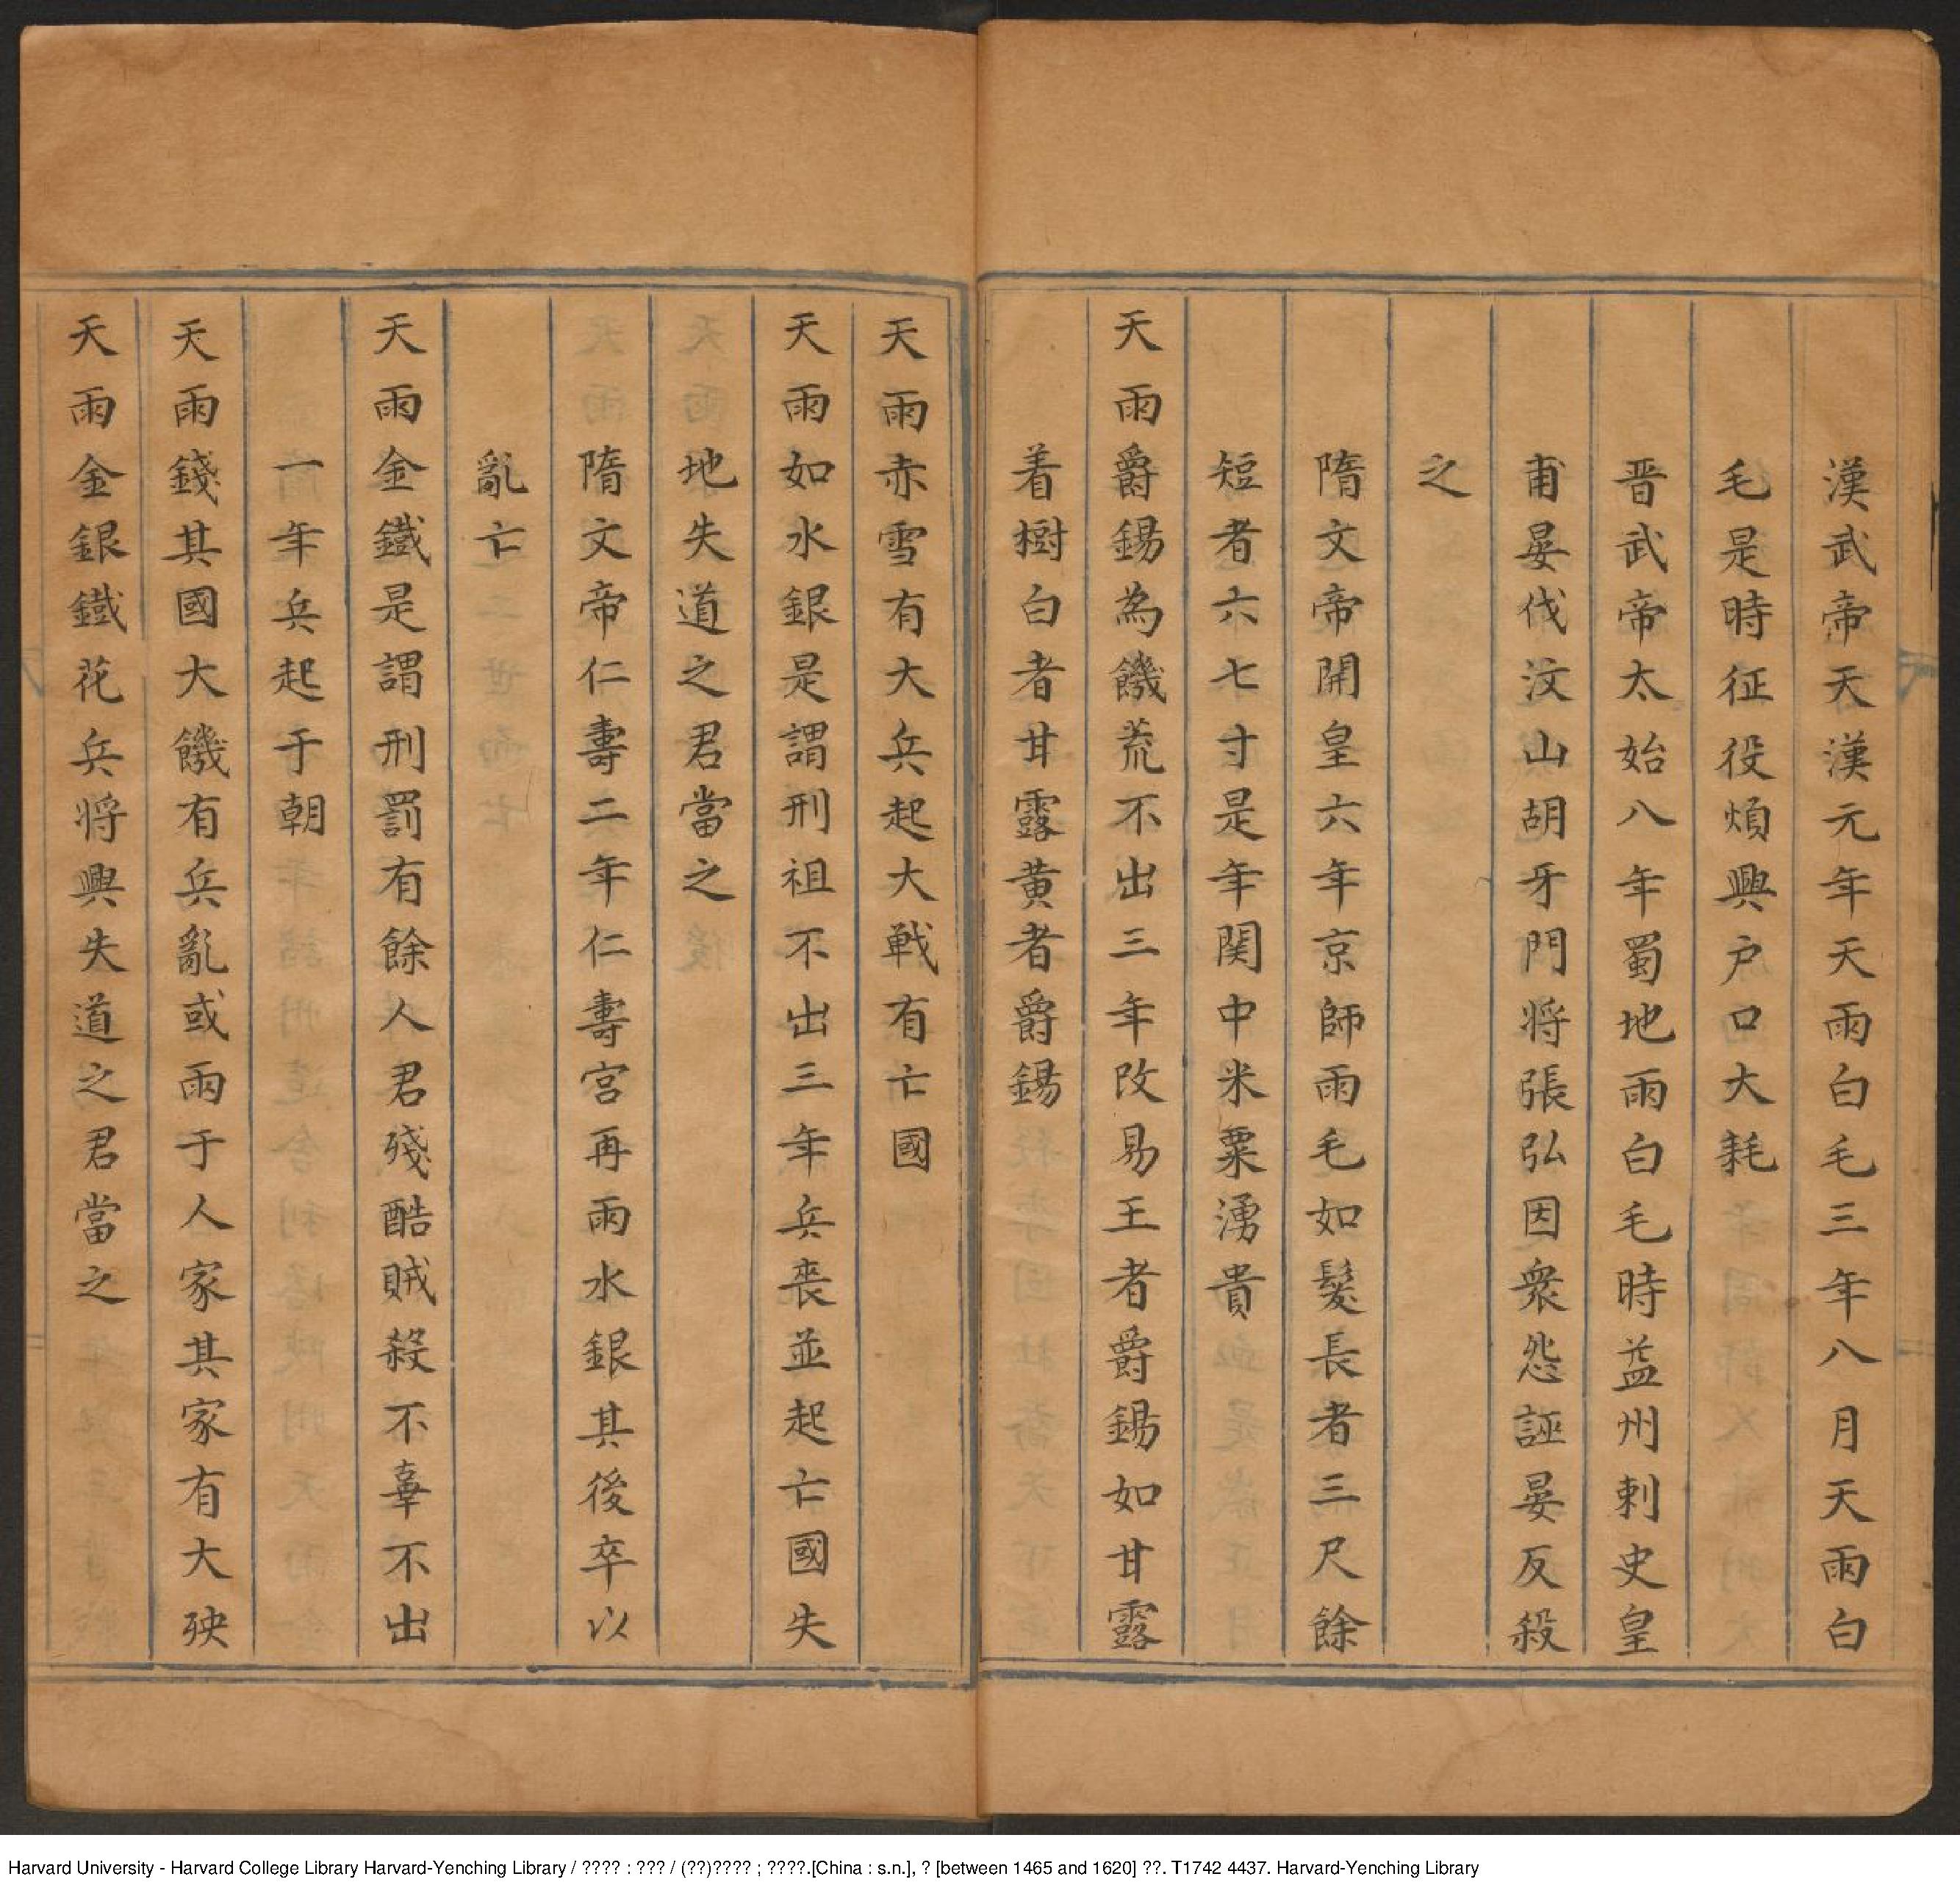 漢武帝天漢元年天雨白毛三年八月天雨白
毛是時征役煩興户口大耗
晋武帝太始八年蜀地雨白毛時益州刺史皇
甫晏伐汶山胡牙門將張弘因衆怨誣晏反殺
之
隋文帝開皇六年京師雨毛如髮長者三尺餘
短者六七寸是年関中米粟湧貴
天雨爵錫為饑荒不出三年改易王者爵錫如甘露
着樹白者甘露黄者爵錫
天雨赤雪有大兵起大戦有亡國
天雨如水銀是謂刑祖不出三年兵喪並起亡國失
地失道之君當之
隋文帝仁壽二年仁壽宮再雨水銀其後卒以
亂亡
天雨金鐵是謂刑罰有餘人君殘酷賊殺不辜不出
一年兵起于朝
天雨錢其國大饑有兵亂或雨于人家其家有大殃
天雨金銀鐵花兵将興失道之君當之
Harvard University - Harvard College Library Harvard-Yenching Library / ???? : ??? / (??)???? ; ????.[China : s.n.], ? [between 1465 and 1620] ??. T1742 4437. Harvard-Yenching Library